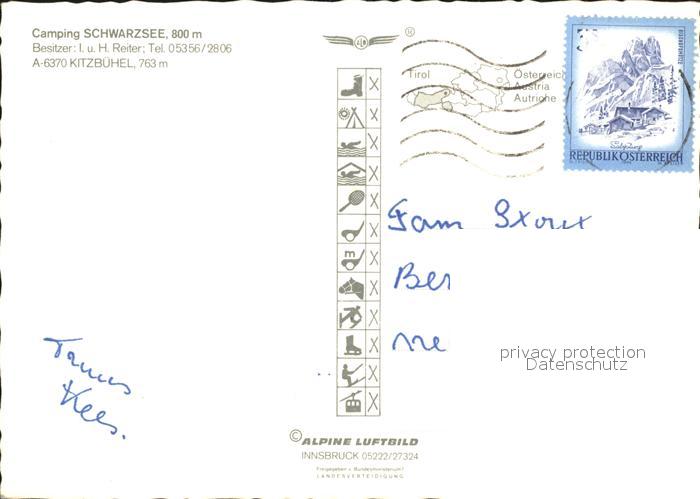 Camping SCHWARZSEE, 800 m
Besitzer: I. u. H. Reiter; Tel. 05356/2806
A-6370 KITZBÜHEL, 763 m
®
Tirol
Österreich
Austria
Autriche
Salzburg
REPUBLIK ÖSTERREICH
m
Fam
Ber
privacy protection
Datenschutz
Kees.
© ALPINE LUFTBILD
INNSBRUCK 05222/27324
Freigegeben v. Bundesministerium f.
LANDESVERTEIDIGUNG